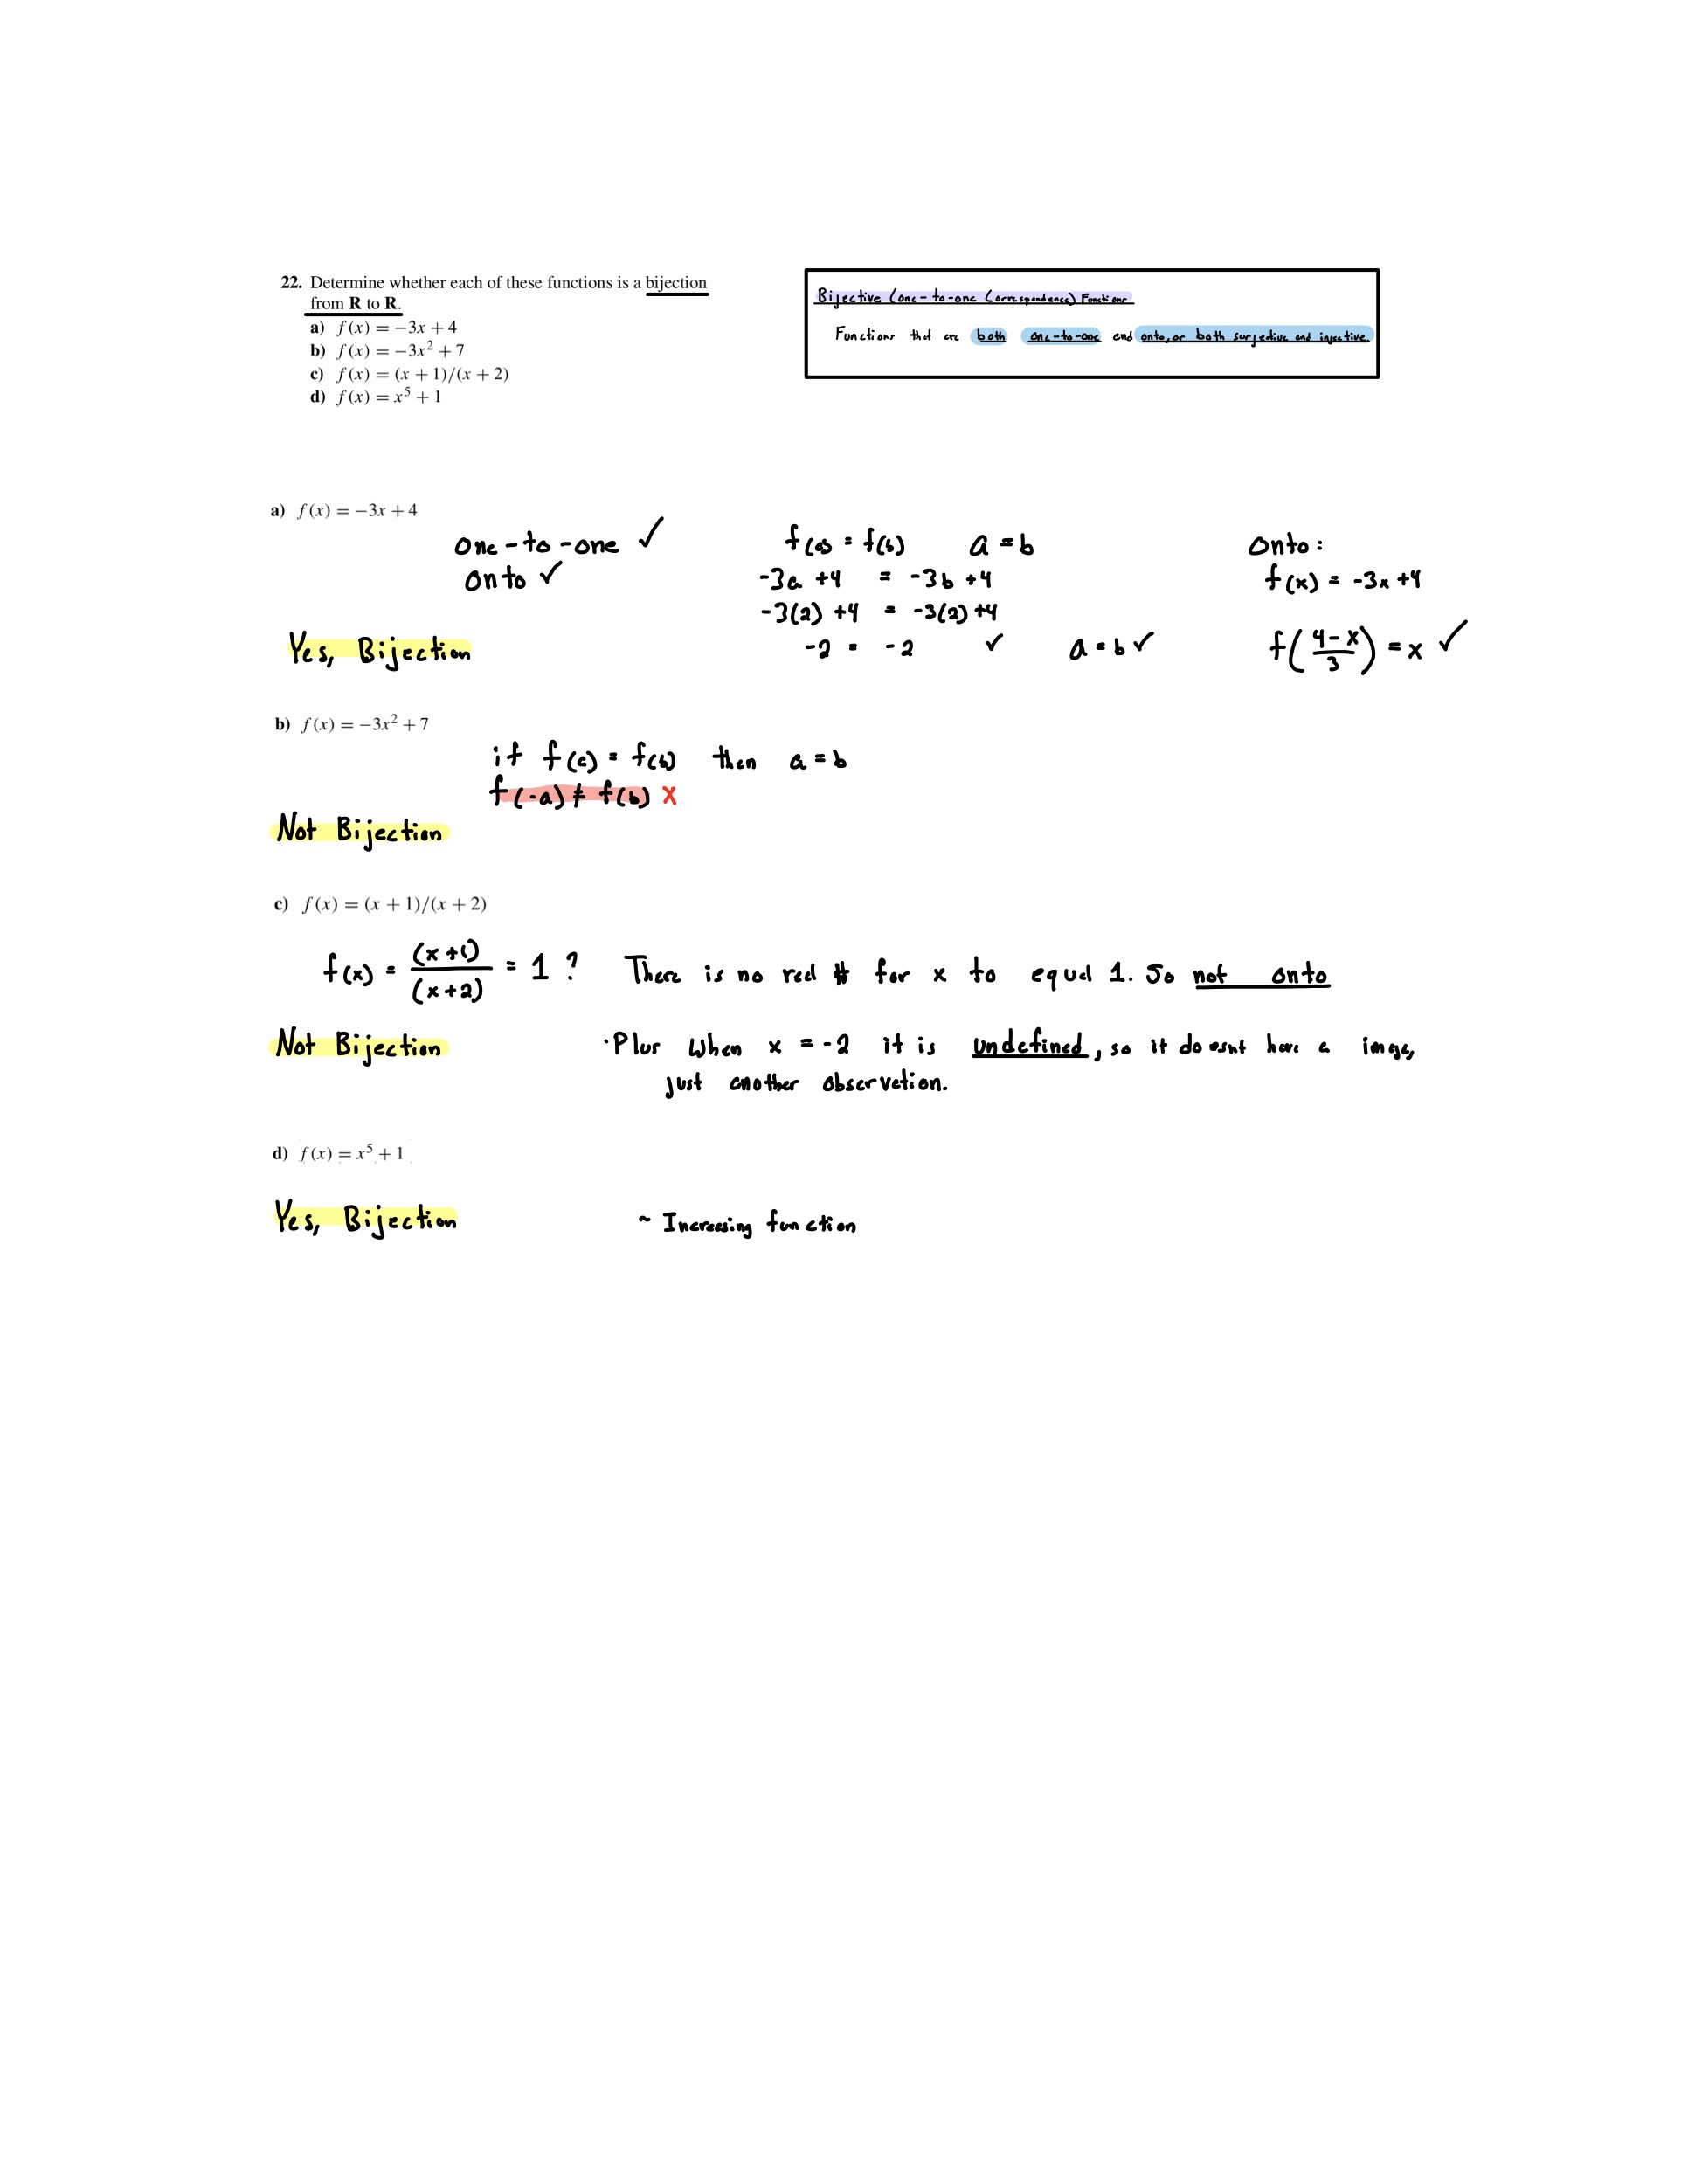 22. Determine whether each of these functions is a bijection
from R to R.
a) f(x) = −3x + 4
b) f(x) = −3x² + 7
c) f(x) = (x + 1)/(x + 2)
d) f(x) = x⁵ + 1
Bijective (one-to-one Correspondence) Functions
Functions that are both one-to-one and onto, or both surjective and injective.
a) f(x) = −3x + 4
one-to-one ✓
onto ✓
Yes, Bijection
f(a) = f(b) a = b
-3a + 4 = -3b + 4
-3(2) + 4 = -3(2) + 4
-2 = -2 ✓ a = b ✓
Onto:
f(x) = -3x + 4
f((4-x)/3) = x ✓
b) f(x) = −3x² + 7
if f(a) = f(b) then a = b
f(-a) ≠ f(b) X
Not Bijection
c) f(x) = (x + 1)/(x + 2)
f(x) = (x+1)/(x+2) = 1 ? There is no real # for x to equal 1. So not onto
Not Bijection
·Plus when x = -2 it is undefined, so it doesnt have a image,
just another observation.
d) f(x) = x⁵ + 1
Yes, Bijection
~ Increasing function